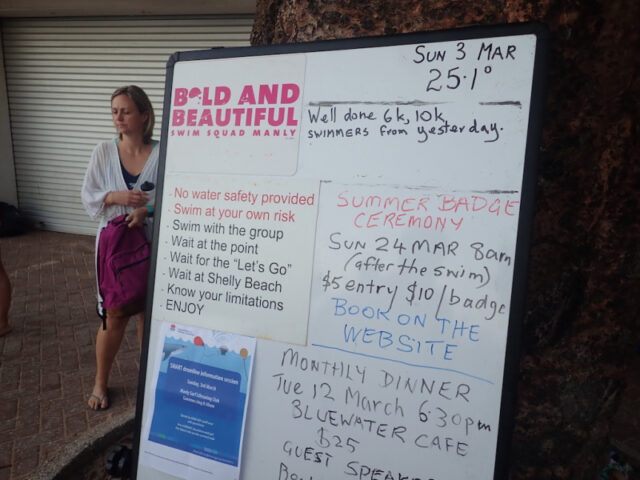 SUN 3 MAR
25.1°
BOLD AND
BEAUTIFUL
SWIM SQUAD MANLY
Well done 6k, 10k,
SWIMMERS from yesterday.
- No water safety provided
- Swim at your own risk
- Swim with the group
- Wait at the point
- Wait for the "Let's Go"
- Wait at Shelly Beach
- Know your limitations
- ENJOY
SUMMER BADGE
CEREMONY
SUN 24 MAR 8am
(after the swim)
$5 entry $10/badge
BOOK ON THE
WEBSITE
SMART drumline information session
Sunday, 3rd March
MONTHLY DINNER
Tue 12 March 6 30pm
BLUEWATER CAFE
$25
GUEST SPEAKE